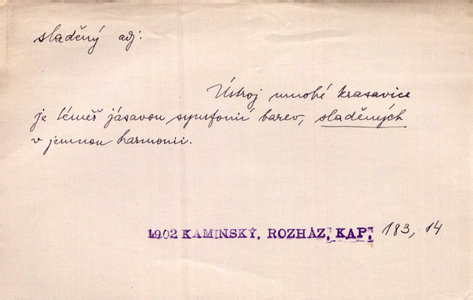 sladěný adj:
Ústroj mnohé krasavice
je téměř jásavou symfonií barev, sladěných
v jemnou harmonii.
1902 KAMINSKÝ, ROZHÁZ, KAP, 183, 14